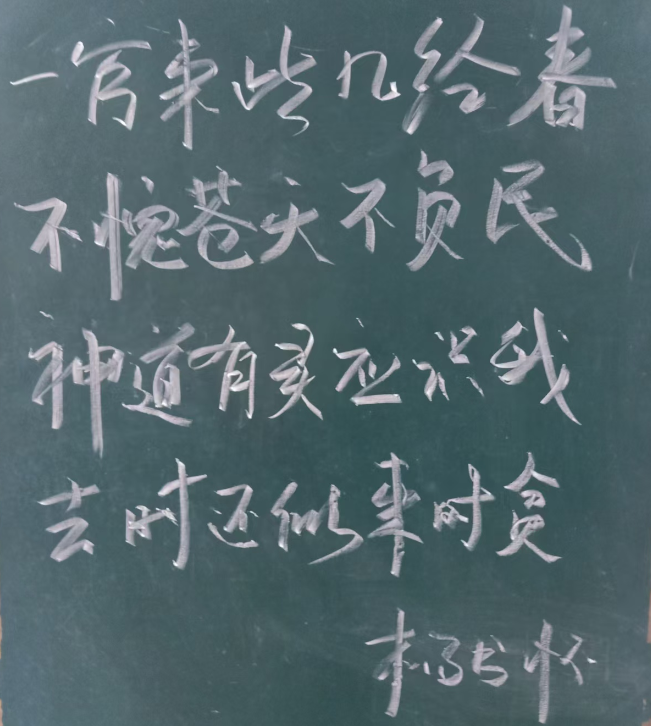 一官来此几经春
不愧苍天不负民
神道有灵应识我
去时还似来时贫
杨书怀